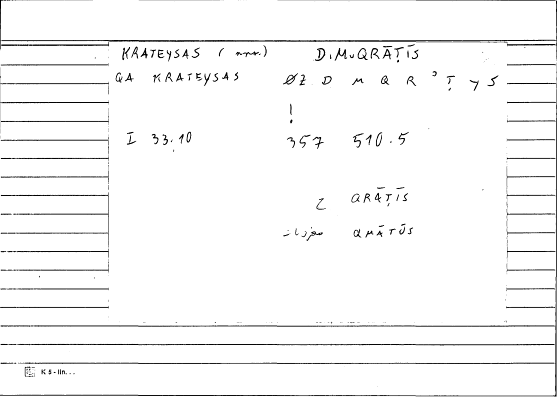 KRATEYSAS (n.pr.) DiMuQRĀṬĪS
QA KRATEYSAS ØZ D M Q R ʾ Ṭ y S
!
I 33.10 357 510.5
Z QRĀṬĪS
QMĀṬŪS
K 5 - lin. . .